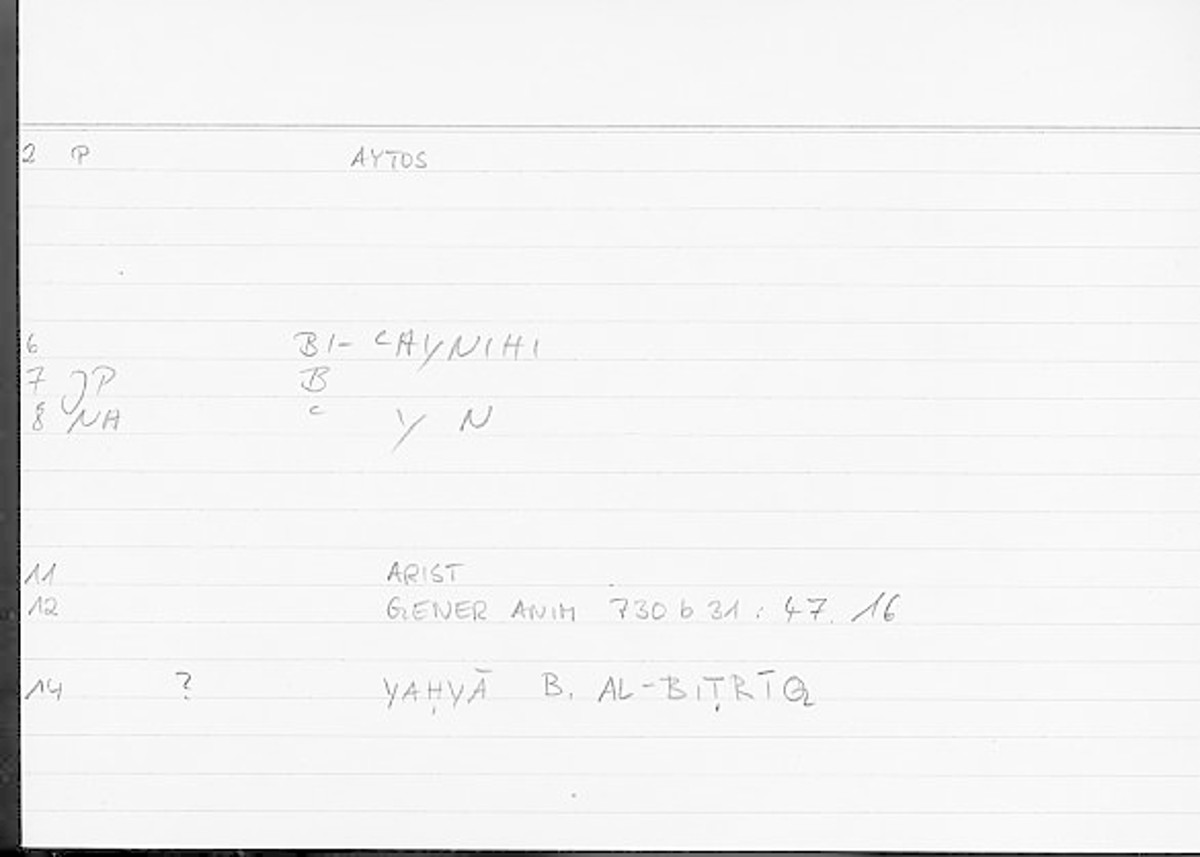 2 P AYTOS
6 BI- ʿAYNIHI
7 JP B
8 NA ʿ Y N
11 ARIST
12 GENER ANIM 730 b 31 : 47. 16
14 ? YAḤYĀ B. AL-BIṬRĪQ